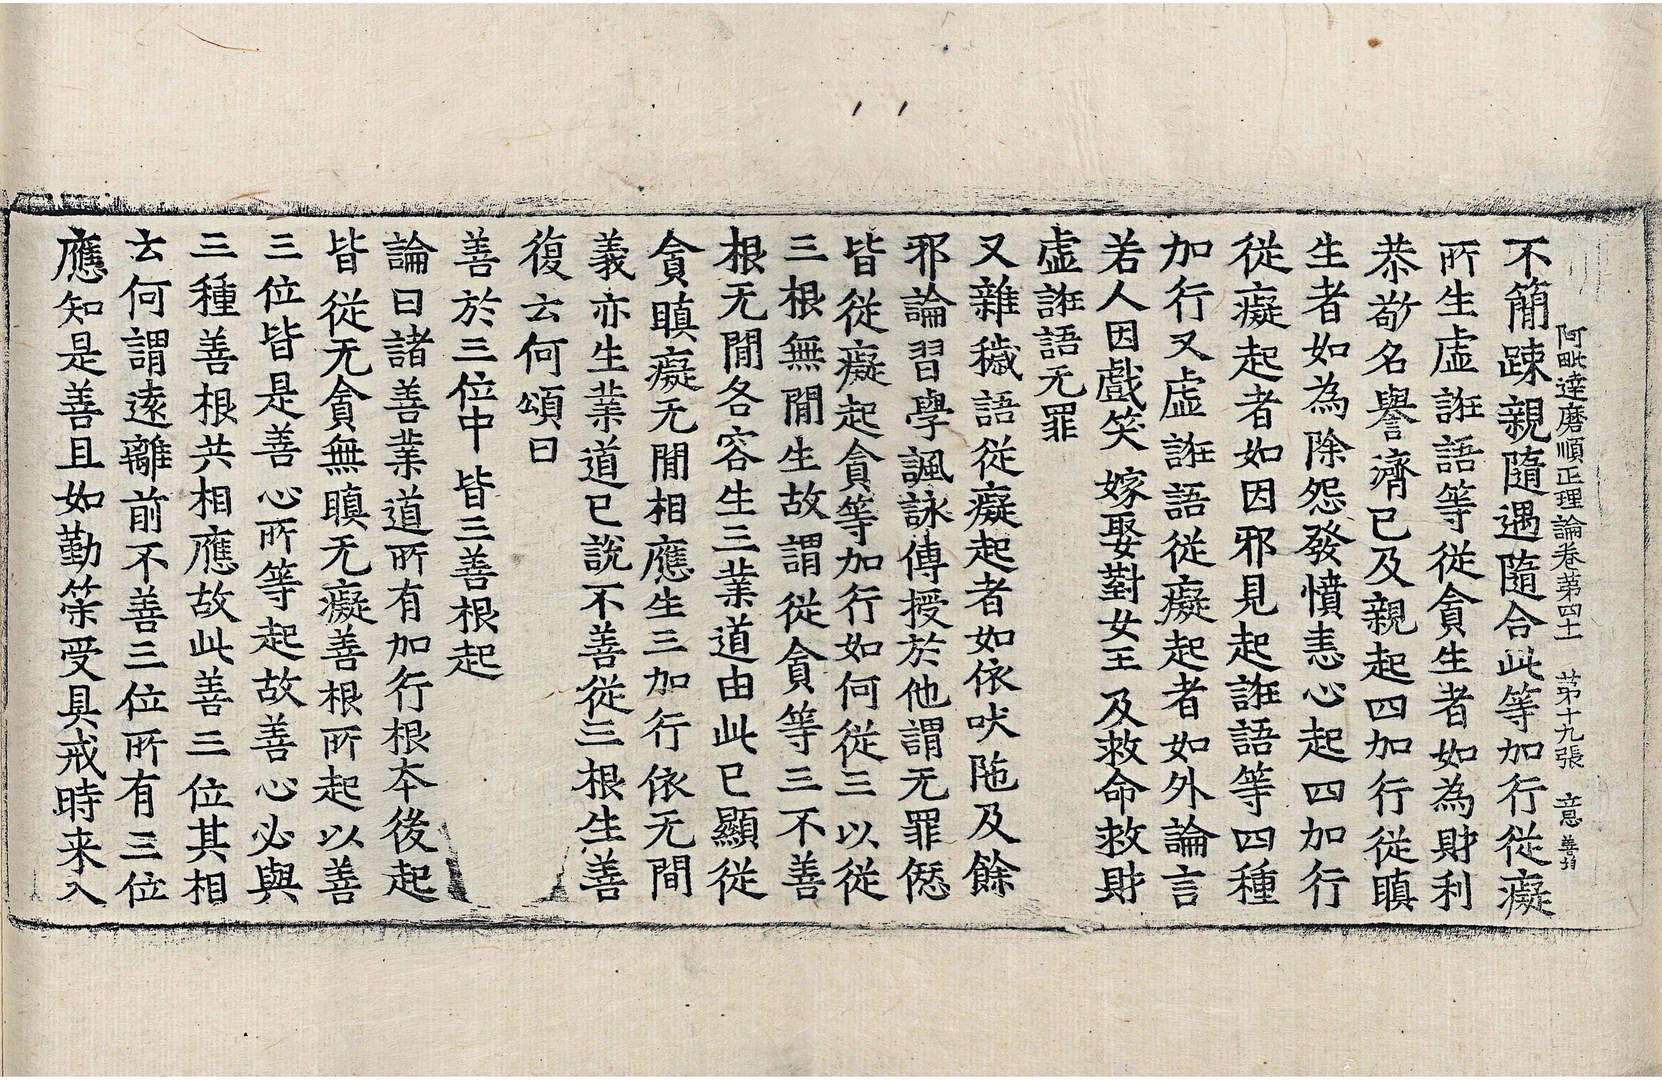 阿毗達磨順正理論卷第四十一 第十九張 意
不簡踈親隨遇隨合此等加行從癡
所生虛誑語等從貪生者如為財利
恭敬名譽濟己及親起四加行從瞋
生者如為除怨發憤恚心起四加行
從癡起者如因邪見起誑語等四種
加行又虛誑語從癡起者如外論言
若人因戲笑 嫁娶對女王 及救命救財
虛誑語无罪
又雜穢語從癡起者如依吠陁及餘
邪論習學諷詠傳授於他謂无罪𠎝
皆從癡起貪等加行如何從三以從
三根無閒生故謂從貪等三不善
根无閒各容生三業道由此已顯從
貪瞋癡无閒相應生三加行依无間
義亦生業道已說不善從三根生善
復云何頌曰
善於三位中 皆三善根起
論曰諸善業道所有加行根本後起
皆從无貪無瞋无癡善根所起以善
三位皆是善心所等起故善心必與
三種善根共相應故此善三位其相
云何謂遠離前不善三位所有三位
應知是善且如勤策受具戒時来入